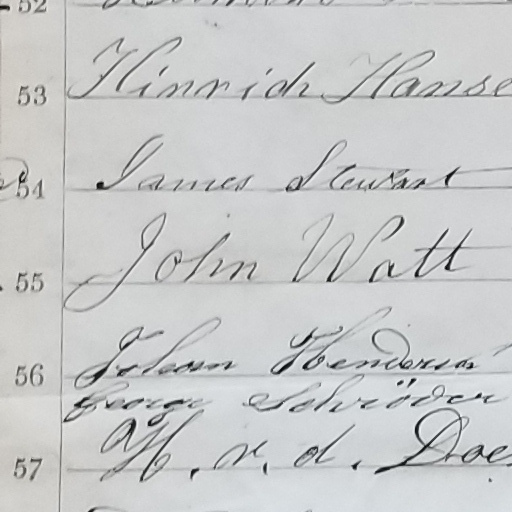 53 Hinrich Hanse
54 James Stewart
55 John Watt
56 Johan Henderson
George Schröder
57 H. v. d. Doe